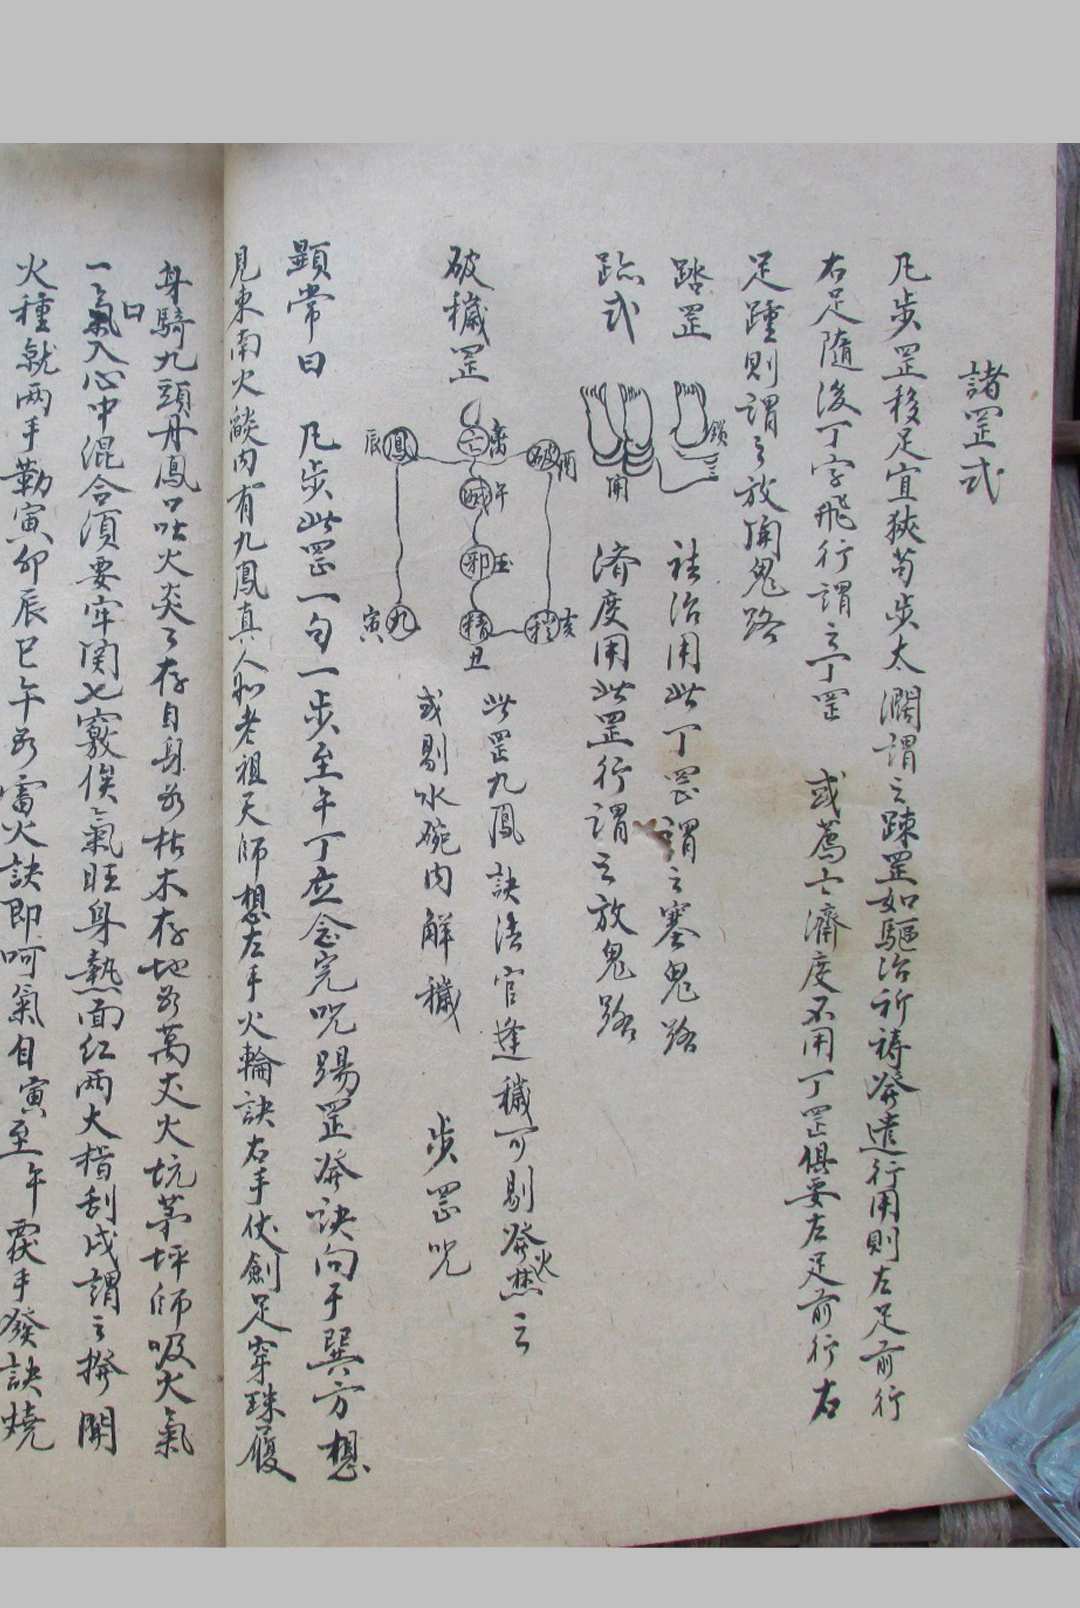 諸罡式
凡步罡移足宜狹苟步太濶謂之踈罡如驅治祈禱發遣行用則左足前行
右足隨後丁字飛行謂之丁罡 或薦亡濟度不用丁罡俱要左足前行右
足踵則謂之放開鬼路
踏罡 鎖 法治用此丁罡謂之塞鬼路
跡式 開 済度用此罡行謂之放鬼路
破穢罡
破 酉
離
午
邪
鳳 辰
穢 亥
精 丑
九 寅
此罡九鳳訣法官逢穢可剔發火焚之
或剔水碗内解穢 步罡咒
顕常曰 凡步此罡一句一步至午丁立念完咒踢罡發訣向于巽方想
見東南火燄内有九鳳真人和老祖天師想左手火輪訣右手伏劍足穿珠履
身騎九頭丹鳳口吐火炎々存自身为枯木存地为萬丈火坑茅坪師吸火氣
一氣曰入心中混合須要牢関七竅俟氣旺身熱面红两大指刮戌謂之撥開
火種就两手勒寅卯辰巳午为雷火訣即呵氣自寅至午覆手發訣燒